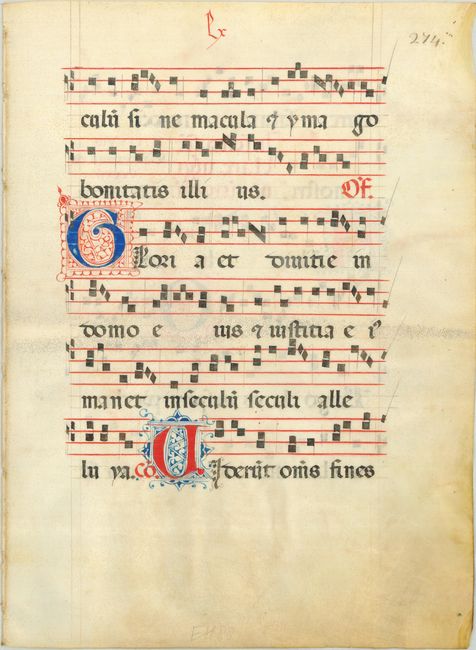 Lx
274.
culū si ne macula ⁊ yma go
bonitatis illi us. Of.
Glori a et diuitie in
domo e ius ⁊ iustitia e iꝰ
manet in seculū seculi alle
lu ya. Co. Uiderūt oms̄ fines